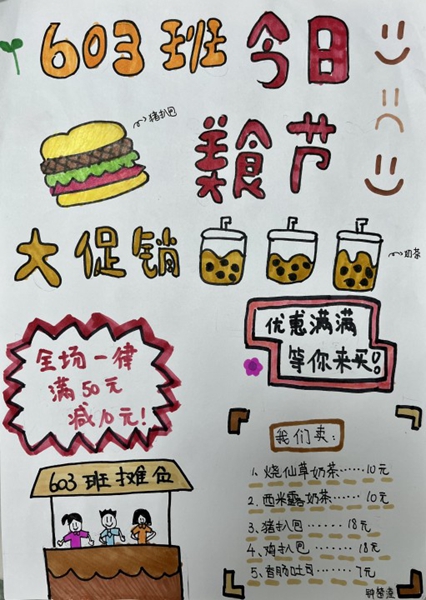 603班 今日
美食节
猪扒包
大促销
奶茶
优惠满满
等你来买!
全场一律
满50元
减10元!
我们卖:
603班摊位
1. 烧仙草奶茶……10元
2. 西米露奶茶……10元
3. 猪扒包……18元
4. 鸡扒包……18元
5. 香肠吐司……7元